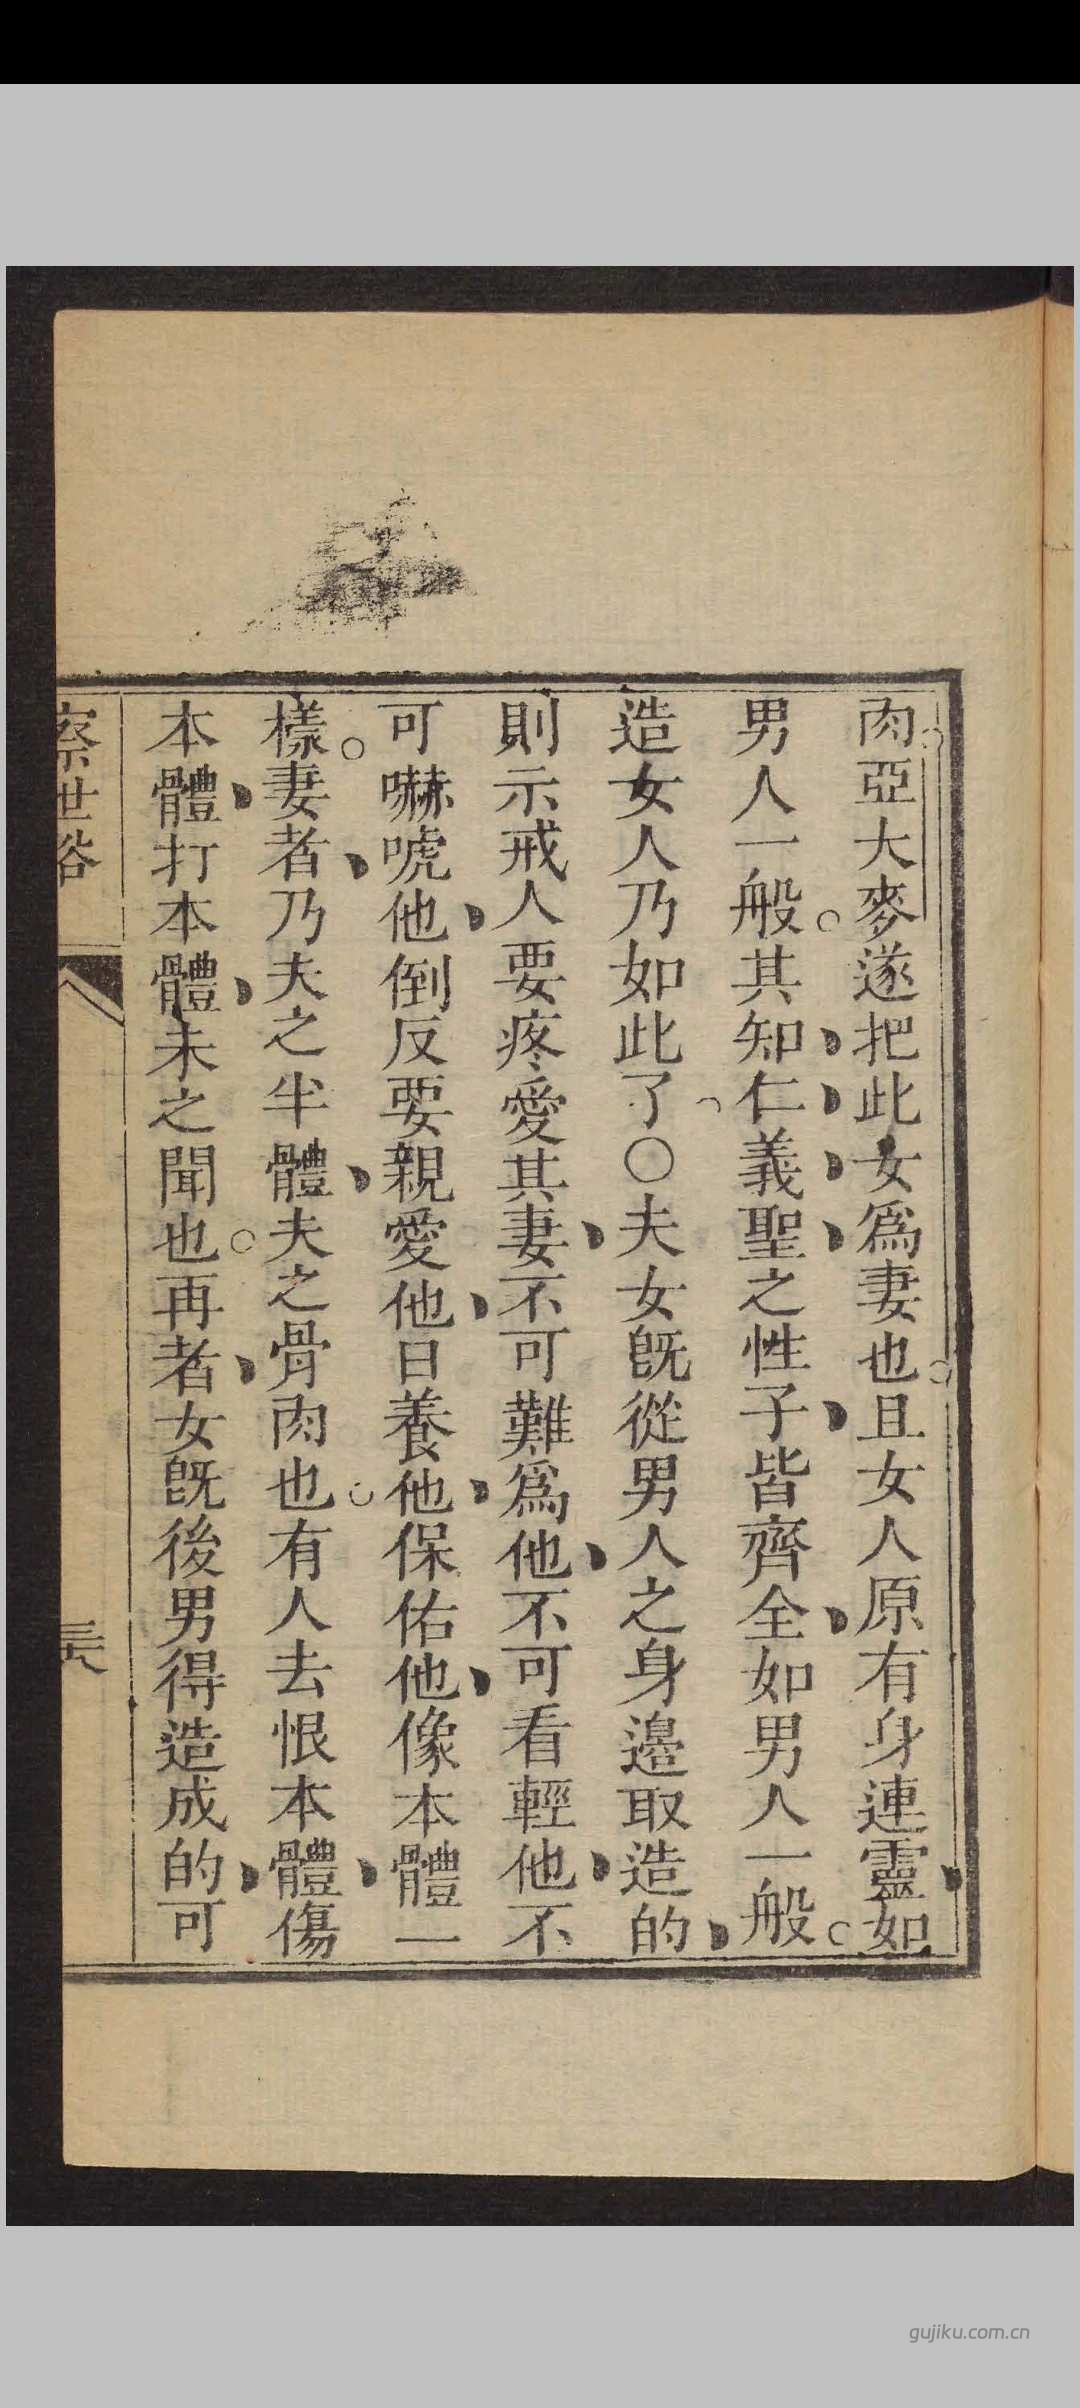 肉。亞大麥遂把此女爲妻也。且女人原有身連靈、如
男人一般。其知、仁、義、聖、之性子、皆齊全、如男人一般。
造女人乃如此了。○夫女旣從男人之身邊取造的、
則示戒人要疼愛其妻、不可難爲他、不可看輕他、不
可嚇唬他、倒反要親愛他、日養他、保佑他、像本體一
樣。妻者、乃夫之半體、夫之骨肉也。有人去恨本體、傷
本體、打本體、未之聞也。再者、女旣後男得造成的、可
察世俗
gujiku.com.cn